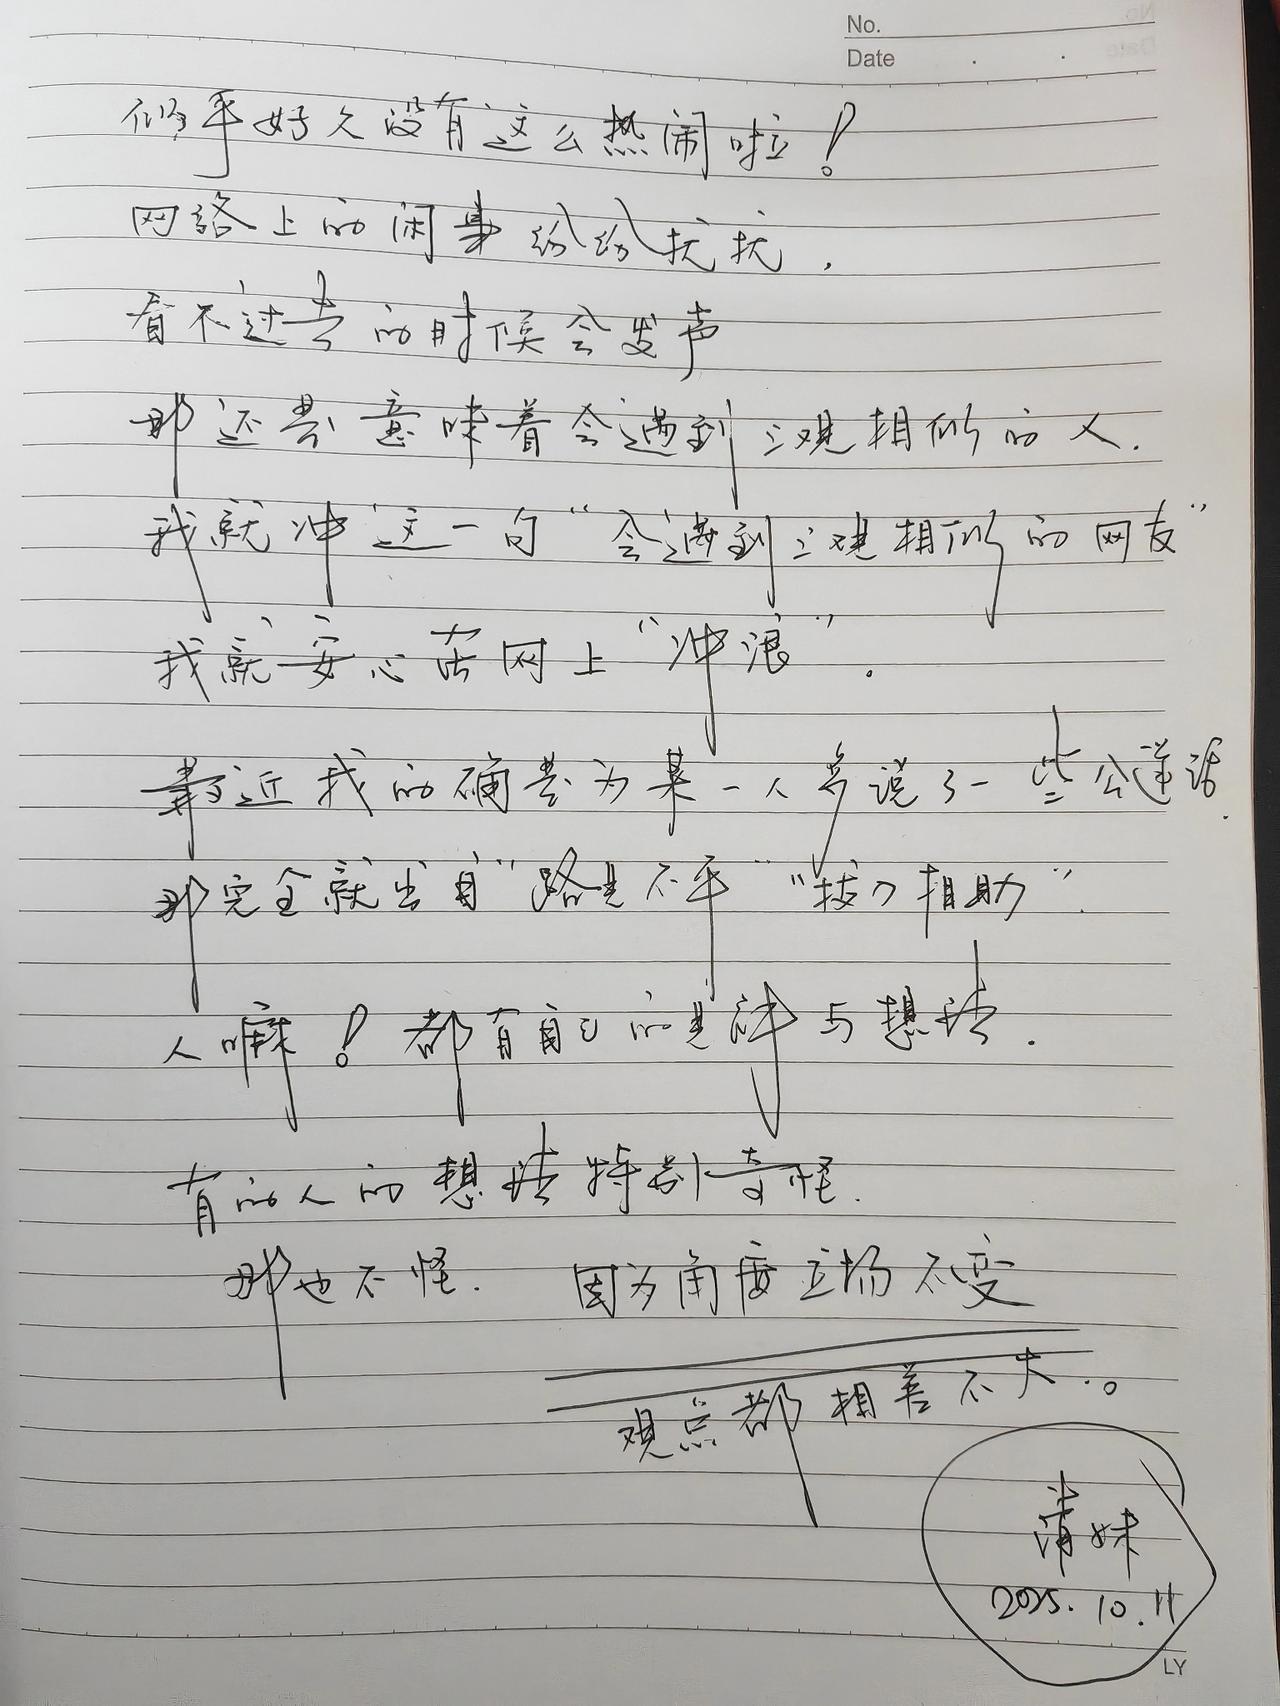 No.
Date
似乎好久没有这么热闹啦！
网络上的闲事纷纷扰扰，
看不过去的时候会发声
那还要意味着会遇到三观相似的人.
我就冲这一句“会遇到三观相似的网友”
我就安心在网上“冲浪”。
最近我的确要为某一人多说了一些公道话.
那完全就出自“路见不平”“拔刀相助”.
人嘛！都有自己的见解与想法.
有的人的想法特别奇怪.
那也不怪. 因为角度立场不变
观点都相差不大.。
蒲妹
2025.10.11
LY